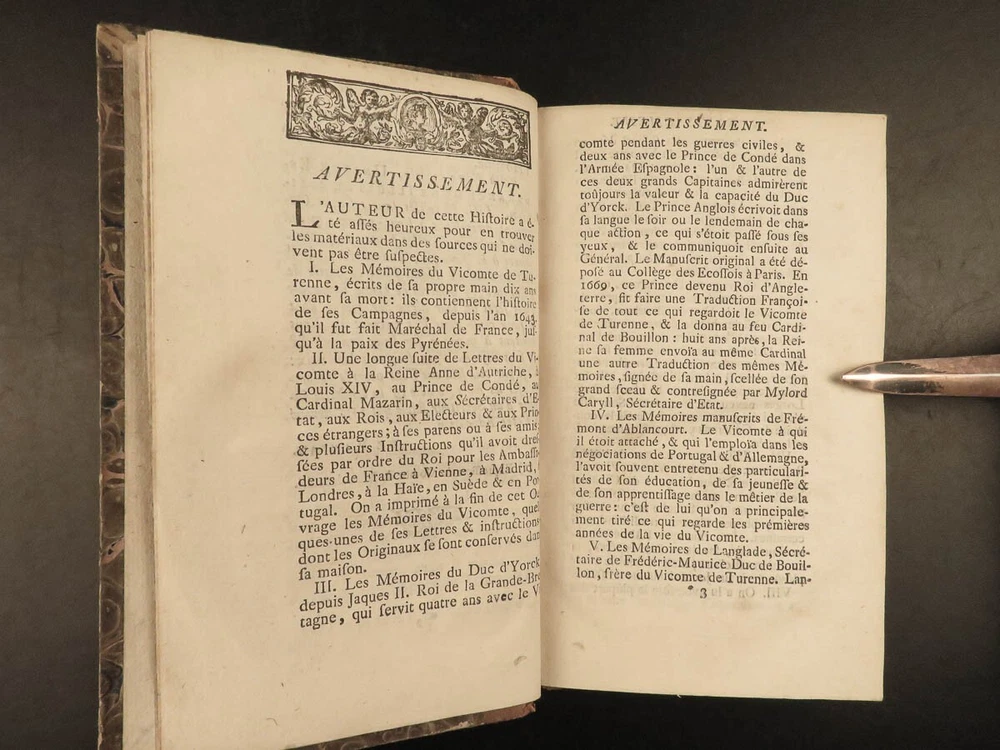 AVERTISSEMENT.
L'AUTEUR de cette Hiſtoire a é-
té aſſés heureux pour en trouver
les matériaux dans des ſources qui ne doi-
vent pas être ſuſpectes.
I. Les Mémoires du Vicomte de Tu-
renne, écrits de ſa propre main dix ans
avant ſa mort: ils contiennent l'hiſtoire
de ſes Campagnes, depuis l'an 1643,
qu'il fut fait Maréchal de France, juſ-
qu'à la paix des Pyrénées.
II. Une longue ſuite de Lettres du Vi-
comte à la Reine Anne d'Autriche, à
Louis XIV, au Prince de Condé, au
Cardinal Mazarin, aux Sécrétaires d'E-
tat, aux Rois, aux Electeurs & aux Prin
ces étrangers; à ſes parens ou à ſes amis
& pluſieurs Inſtructions qu'il avoit dreſ
ſées par ordre du Roi pour les Ambaſſa
deurs de France à Vienne, à Madrid,
Londres, à la Haïe, en Suède & en Por
tugal. On a imprimé à la fin de cet O-
vrage les Mémoires du Vicomte, quel
ques-unes de ſes Lettres & inſtructions
dont les Originaux ſe ſont conſervés dans
ſa maiſon.
III. Les Mémoires du Duc d'Yorck
depuis Jaques II. Roi de la Grande-Bre
tagne, qui ſervit quatre ans avec le V
AVERTISSEMENT.
comte pendant les guerres civiles, &
deux ans avec le Prince de Condé dans
l'Armée Eſpagnole: l'un & l'autre de
ces deux grands Capitaines admirèrent
toûjours la valeur & la capacité du Duc
d'Yorck. Le Prince Anglois écrivoit dans
ſa langue le ſoir ou le lendemain de cha-
que action, ce qui s'étoit paſſé ſous ſes
yeux, & le communiquoit enſuite au
Général. Le Manuſcrit original a été dé-
poſé au Collège des Ecoſſois à Paris. En
1669, ce Prince devenu Roi d'Angle-
terre, fit faire une Traduction Françoi-
ſe de tout ce qui regardoit le Vicomte
de Turenne, & la donna au feu Cardi-
nal de Bouillon: huit ans après, la Rei-
ne ſa femme envoïa au même Cardinal
une autre Traduction des mêmes Mé-
moires, ſignée de ſa main, ſcellée de ſon
grand ſceau & contreſignée par Mylord
Caryll, Sécrétaire d'Etat.
IV. Les Mémoires manuſcrits de Fré-
mont d'Ablancourt. Le Vicomte à qui
il étoit attaché, & qui l'emploïa dans les
négociations de Portugal & d'Allemagne,
l'avoit ſouvent entretenu des particulari-
tés de ſon éducation, de ſa jeuneſſe &
de ſon apprentiſſage dans le mêtier de la
guerre: c'eſt de lui qu'on a principale-
ment tiré ce qui regarde les prémières
années de la vie du Vicomte.
V. Les Mémoires de Langlade, Sécré-
taire de Frédéric-Maurice Duc de Bouil-
lon, frère du Vicomte de Turenne. Lan-
* 3